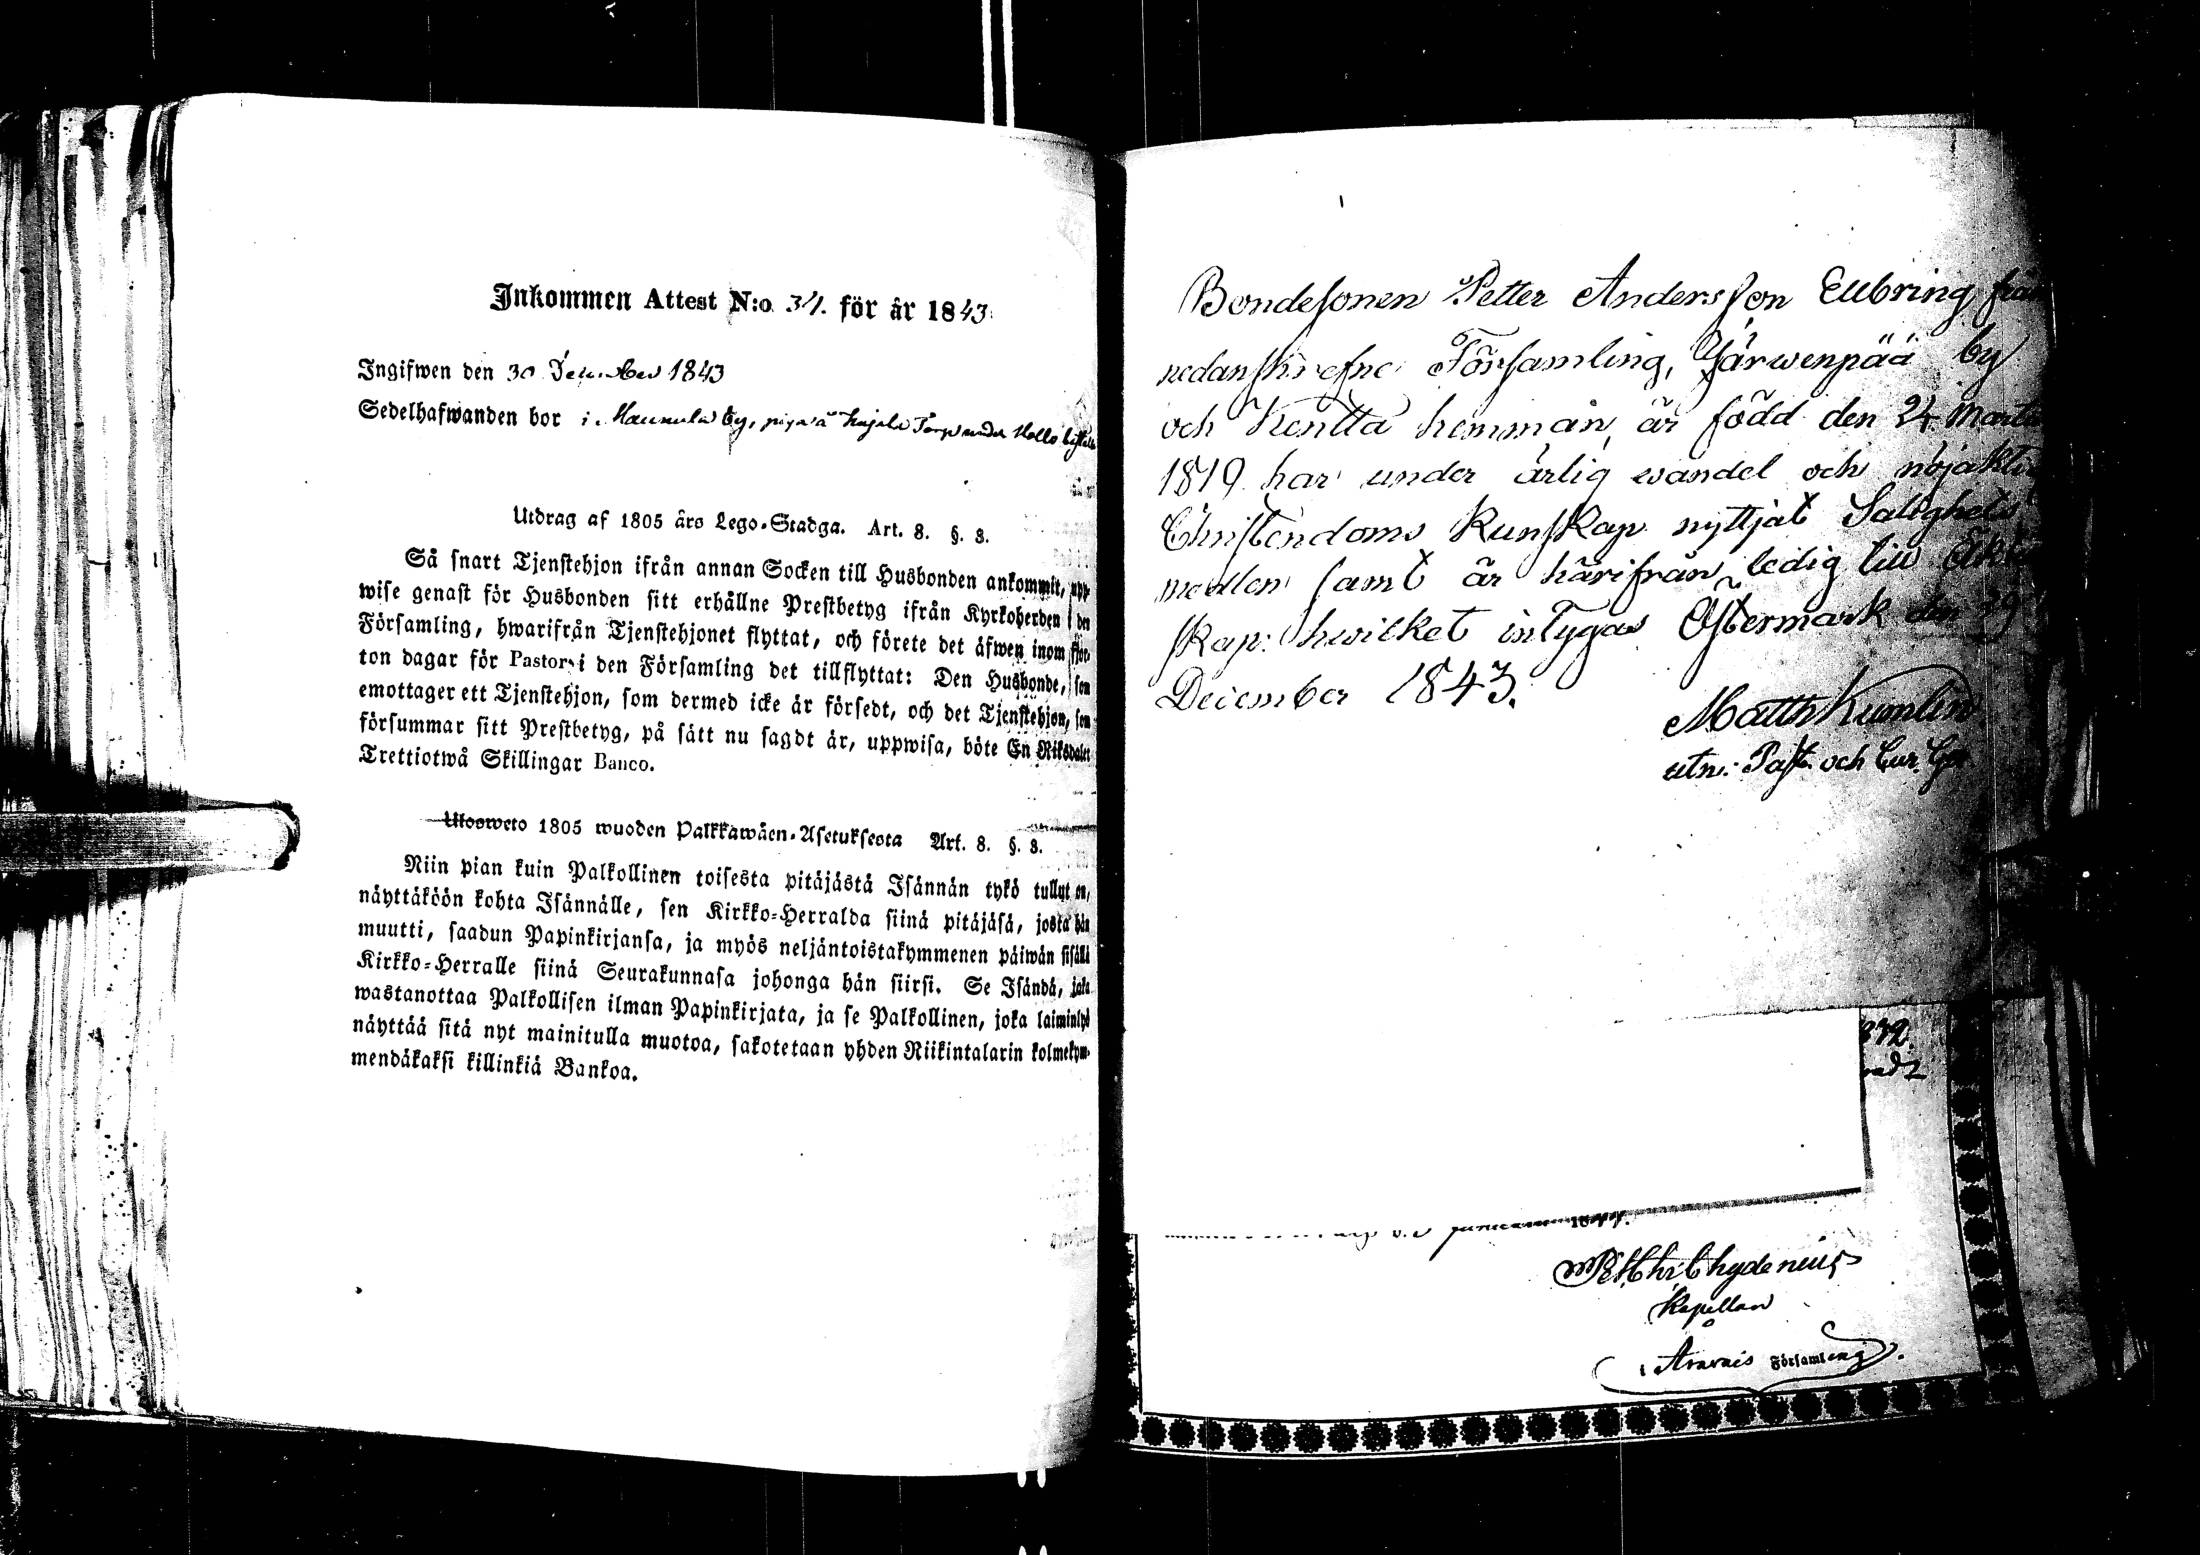 Inkommen Attest N:o 34. för år 1843.
Ingifwen den 30 December 1843
Sedelhafwanden bor i Maunula by, piga å Kajala Torp under
Utdrag af 1805 års Lego-Stadga. Art. 8. §. 3.
Så snart Tjenstehjon ifrån annan Socken till Husbonden ankommit, upp-
wise genast för Husbonden sitt erhållne Prestbetyg ifrån Kyrkoherden i den
Församling, hwarifrån Tjenstehjonet flyttat, och förete det äfwen inom fjor-
ton dagar för Pastor i den Församling det tillflyttat: Den Husbonde, som
emottager ett Tjenstehjon, som dermed icke är försedt, och det Tjenstehjon, som
försummar sitt Prestbetyg, på sätt nu sagdt är, uppwisa, böte En Riksdaler
Trettiotwå Skillingar Banco.
Ulosweto 1805 wuoden Palkkawäen-Asetuksesta Art. 8. §. 3.
Niin pian kuin Palkollinen toisesta pitäjästä Isännän tykö tullut on,
näyttäköön kohta Isännälle, sen Kirkko-Herralda siinä pitäjäsä, josta hän
muutti, saadun Papinkirjansa, ja myös neljäntoistakymmenen päiwän sisällä
Kirkko-Herralle siinä Seurakunnasa johonga hän siirsi. Se Isändä, joka
wastanottaa Palkollisen ilman Papinkirjata, ja se Palkollinen, joka laiminlyö
näyttää sitä nyt mainitulla muotoa, sakotetaan yhden Riikintalarin kolmekym-
mendäkaksi killinkiä Bankoa.
Bondesonen Petter Andersson Ellbring från
nedanskrefne Församling, Järwenpää by
och Kentta hemman, är född den 24 Martii
1819 har under ärlig wandel och nöjaktig
Christendoms Kunskap nyttjat Salighets
medlen samt är härifrån ledig till Äkten
skap: hwilket intygas Östermark den 29
December 1843.
Matth Kumlin
utn: Past. och Cur. Ger.
842.
Chydenius
Kapellan
i Oravais Församling.